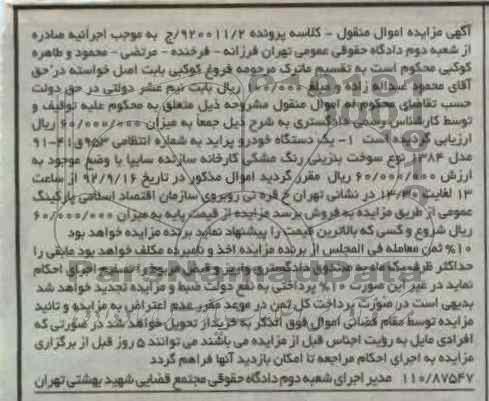 آگهی مزایده اموال منقول - کلاسه پرونده ۹۲۰۰۱۱/۲/ج به موجب اجرائیه صادره
از شعبه دوم دادگاه حقوقی عمومی تهران فرزانه - فرخنده - مرتضی - محمود و طاهره
کوکبی محکوم است به تقسیم ماترک مرحومه فروغ کوکبی بابت اصل خواسته در حق
آقای محمود عبداله زاده و مبلغ ریال بابت نیم عشر دولتی در حق دولت
حسب تقاضای محکوم له اموال منقول مشروحه ذیل متعلق به محکوم علیه توقیف و
توسط کارشناس رسمی دادگستری به شرح ذیل جمعا به میزان ۶۰/۰۰۰/۰۰۰ ریال
ارزیابی گردیده است ۱- یک دستگاه خودرو پراید به شماره انتظامی ۹۵۳ق۴۱-۹۱
مدل ۱۳۸۴ نوع سوخت بنزینی رنگ مشکی کارخانه سازنده سایپا با وضع موجود به
ارزش ۶۰/۰۰۰/۰۰۰ ریال مقرر گردید اموال مذکور در تاریخ ۹۲/۹/۱۶ از ساعت
۱۳ لغایت ۱۳/۳۰ در نشانی تهران خ قره نی روبروی سازمان اقتصاد اسلامی پارکینگ
عمومی از طریق مزایده به فروش برسد مزایده از قیمت پایه به میزان ۶۰/۰۰۰/۰۰۰
ریال شروع و کسی که بالاترین قیمت را پیشنهاد نماید برنده مزایده خواهد بود
۱۰٪ ثمن معامله فی المجلس از برنده مزایده اخذ و نامبرده مکلف خواهد بود مابقی را
حداکثر ظرف یک ماه به صندوق دادگستری واریز و قبض مربوطه را تسلیم اجرای احکام
نماید در غیر این صورت ۱۰٪ پرداختی به نفع دولت ضبط و مزایده تجدید خواهد شد
بدیهی است در صورت پرداخت کل ثمن در موعد مقرر عدم اعتراض به مزایده و تائید
مزایده توسط مقام قضائی اموال فوق الذکر به خریدار تحویل خواهد شد در صورتی که
افرادی مایل به رؤیت اجناس قبل از مزایده می باشند می توانند ۵ روز قبل از برگزاری
مزایده به اجرای احکام مراجعه تا امکان بازدید آنها فراهم گردد
۱۱۰/۸۷۵۴۷ مدیر اجرای شعبه دوم دادگاه حقوقی مجتمع قضایی شهید بهشتی تهران